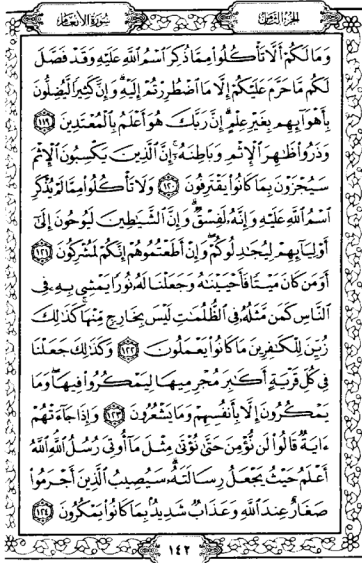 الجزء الثامن
سورة الأنعام
وَمَا لَكُمْ أَلَّا تَأْكُلُوا۟ مِمَّا ذُكِرَ ٱسْمُ ٱللَّهِ عَلَيْهِ وَقَدْ فَصَّلَ
لَكُم مَّا حَرَّمَ عَلَيْكُمْ إِلَّا مَا ٱضْطُرِرْتُمْ إِلَيْهِ ۗ وَإِنَّ كَثِيرًا لَّيُضِلُّونَ
بِأَهْوَآئِهِم بِغَيْرِ عِلْمٍ ۗ إِنَّ رَبَّكَ هُوَ أَعْلَمُ بِٱلْمُعْتَدِينَ ١١٩
وَذَرُوا۟ ظَٰهِرَ ٱلْإِثْمِ وَبَاطِنَهُۥٓ ۚ إِنَّ ٱلَّذِينَ يَكْسِبُونَ ٱلْإِثْمَ
سَيُجْزَوْنَ بِمَا كَانُوا۟ يَقْتَرِفُونَ ١٢٠ وَلَا تَأْكُلُوا۟ مِمَّا لَمْ يُذْكَرِ
ٱسْمُ ٱللَّهِ عَلَيْهِ وَإِنَّهُۥ لَفِسْقٌ ۗ وَإِنَّ ٱلشَّيَٰطِينَ لَيُوحُونَ إِلَىٰٓ
أَوْلِيَآئِهِمْ لِيُجَٰدِلُوكُمْ ۖ وَإِنْ أَطَعْتُمُوهُمْ إِنَّكُمْ لَمُشْرِكُونَ ١٢١
أَوَمَن كَانَ مَيْتًا فَأَحْيَيْنَٰهُ وَجَعَلْنَا لَهُۥ نُورًا يَمْشِى بِهِۦ فِى
ٱلنَّاسِ كَمَن مَّثَلُهُۥ فِى ٱلظُّلُمَٰتِ لَيْسَ بِخَارِجٍ مِّنْهَا ۚ كَذَٰلِكَ
زُيِّنَ لِلْكَٰفِرِينَ مَا كَانُوا۟ يَعْمَلُونَ ١٢٢ وَكَذَٰلِكَ جَعَلْنَا
فِى كُلِّ قَرْيَةٍ أَكَٰبِرَ مُجْرِمِيهَا لِيَمْكُرُوا۟ فِيهَا ۖ وَمَا
يَمْكُرُونَ إِلَّا بِأَنفُسِهِمْ وَمَا يَشْعُرُونَ ١٢٣ وَإِذَا جَآءَتْهُمْ
ءَايَةٌ قَالُوا۟ لَن نُّؤْمِنَ حَتَّىٰ نُؤْتَىٰ مِثْلَ مَآ أُوتِىَ رُسُلُ ٱللَّهِ ۘ ٱللَّهُ
أَعْلَمُ حَيْثُ يَجْعَلُ رِسَالَتَهُۥ ۗ سَيُصِيبُ ٱلَّذِينَ أَجْرَمُوا۟
صَغَارٌ عِندَ ٱللَّهِ وَعَذَابٌ شَدِيدٌۢ بِمَا كَانُوا۟ يَمْكُرُونَ ١٢٤
١٤٢